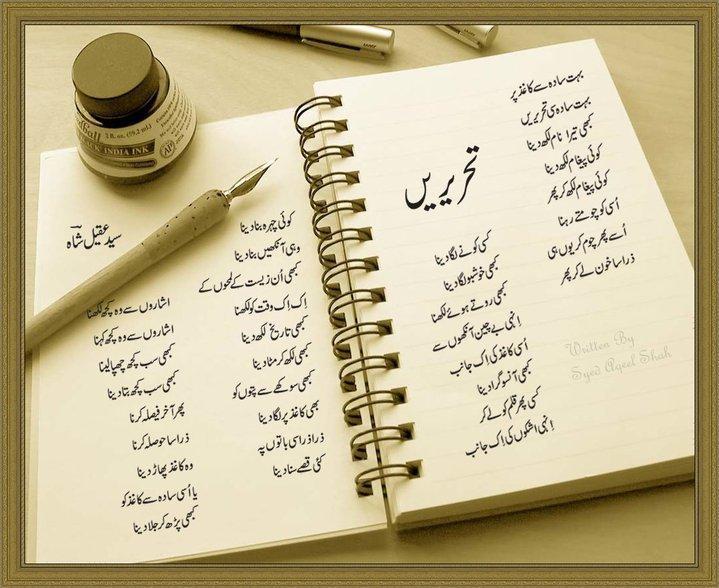 تحریریں
بہت سادہ سے کاغذ پر
بہت سادہ سی تحریریں
کبھی تیرا نام لکھ دینا
کوئی پیغام لکھ دینا
کوئی پیغام لکھ کر پھر
اُسی کو چومتے رہنا
اُسے پھر چوم کر یوں ہی
ذرا سا خون لے کر پھر
کسی کونے لگا دینا
کبھی خوشبو لگا دینا
کبھی روتے ہوئے لکھنا
اِنہی بے چین آنکھوں سے
اُسی کاغذ کی اک جانب
کبھی آنسو گرا دینا
کسی پھر قلم کو لے کر
اِنہی اشکوں کی اِک جانب
Written By
Syed Aqeel Shah
کوئی چہرہ بنا دینا
وہی آنکھیں بنا دینا
کبھی اُن زیست کے لمحوں کے
اِک اِک وقت کو لکھنا
کبھی تاریخ لکھ دینا
کبھی لکھ کر مٹا دینا
کبھی سوکھے سے پتوں کو
بھی کاغذ پر لگا دینا
ذرا ذرا سی باتوں پہ
کئی قصے سنا دینا
سید عقیل شاہ
اشاروں سے وہ کچھ لکھنا
اشاروں سے وہ کچھ کہنا
کبھی سب کچھ چھپا لینا
کبھی سب کچھ بتا دینا
پھر آخر فیصلہ کرنا
ذرا سا حوصلہ کرنا
وہ کاغذ پھاڑ دینا
یا اُسی سادہ سے کاغذ کو
کبھی پڑھ کر جلا دینا
2 fl. oz. (59.2 mL)
INDIA INK
AP